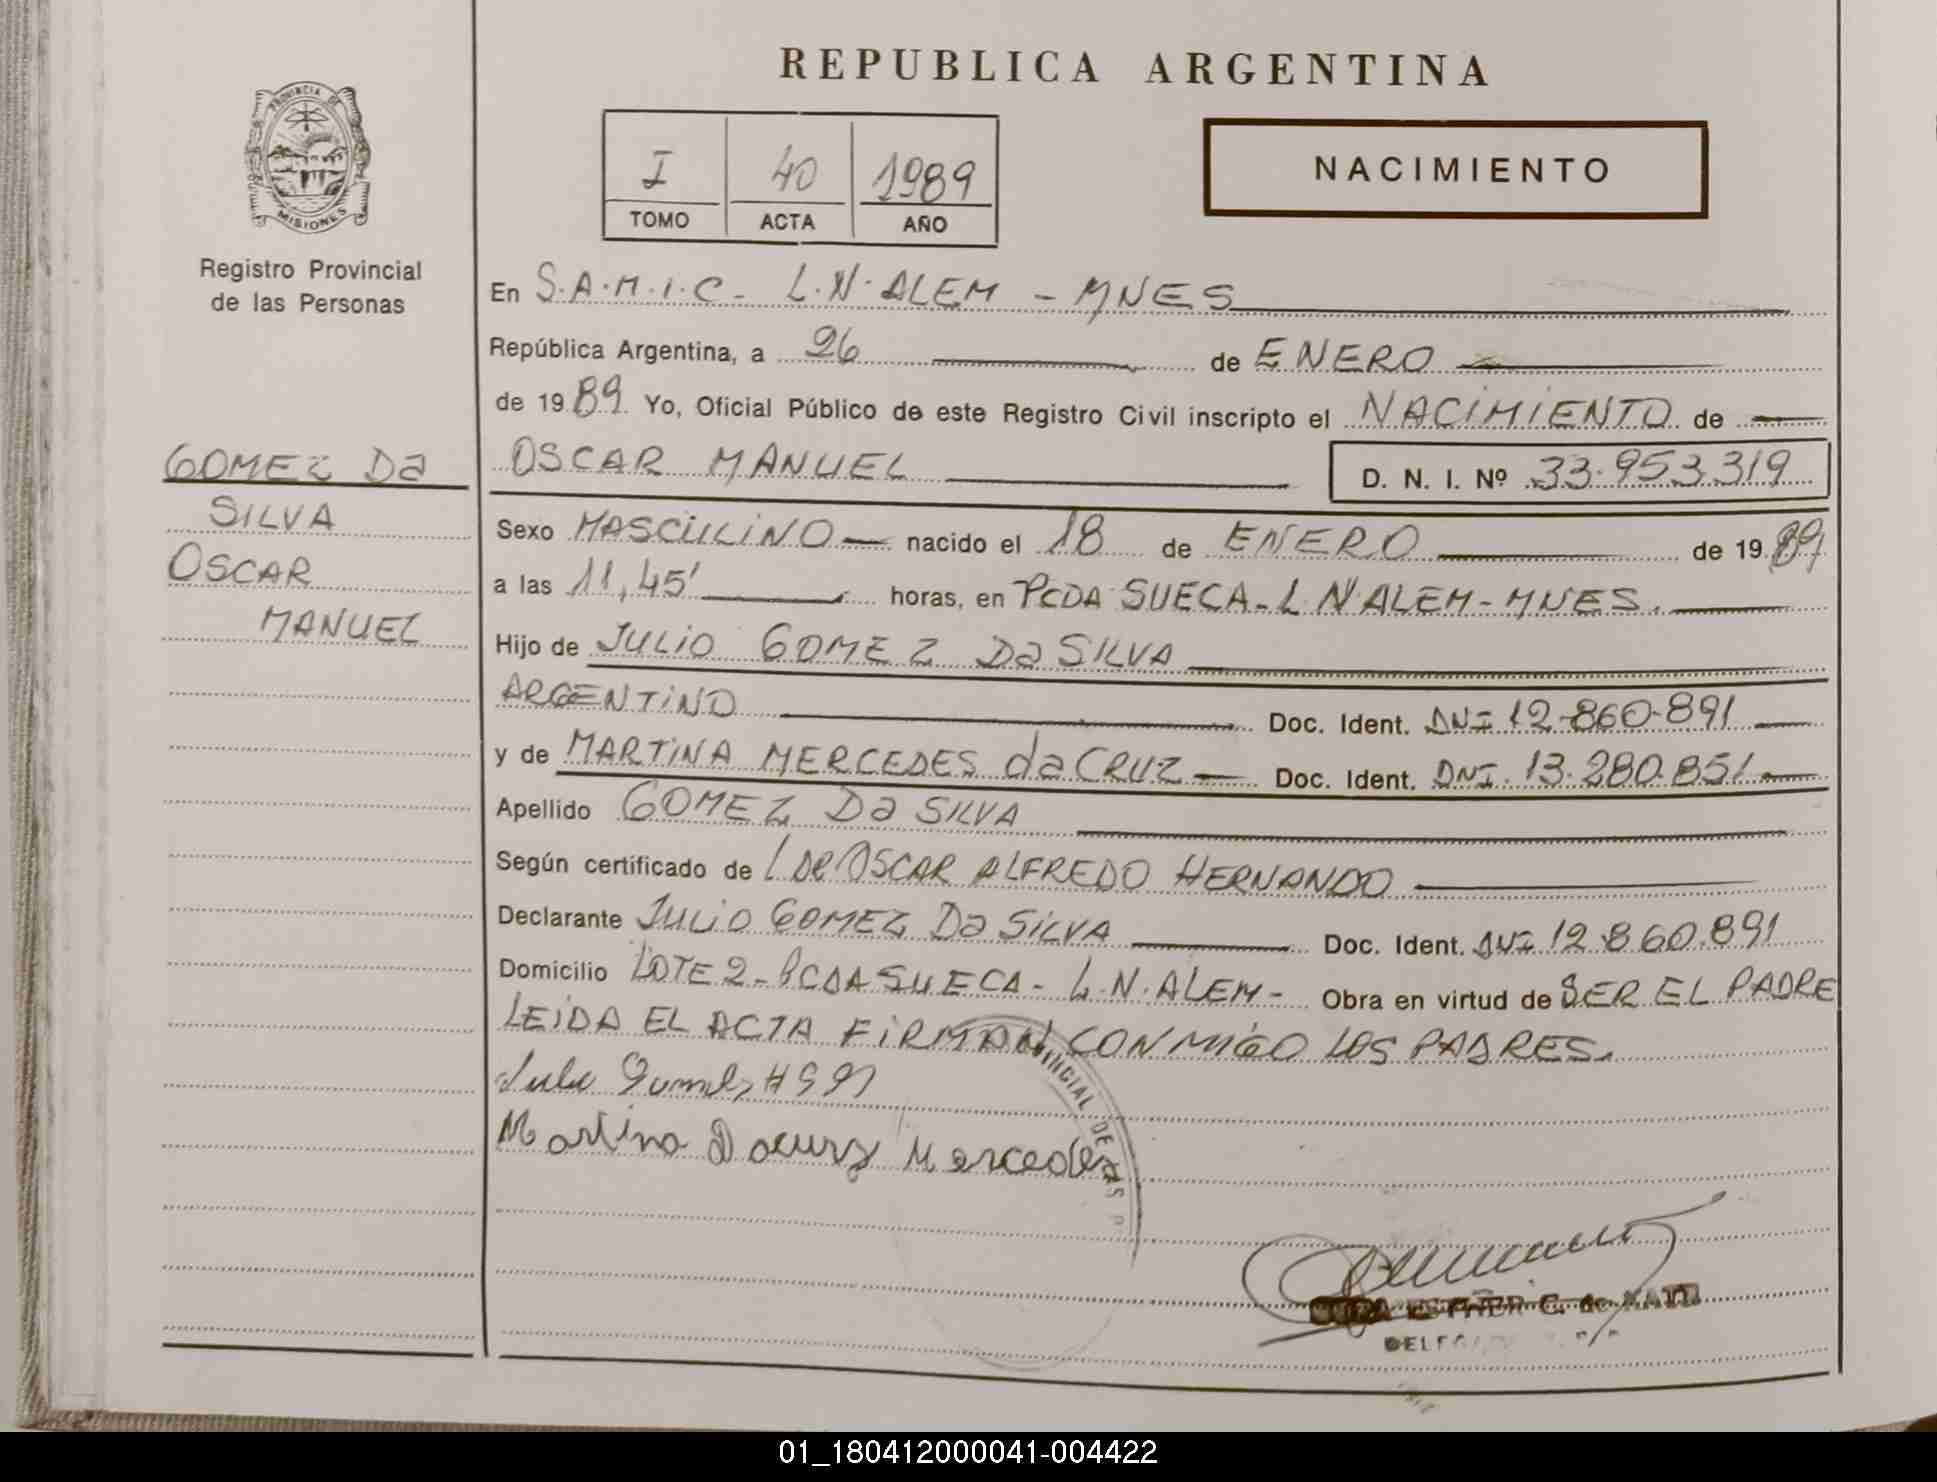 REPUBLICA ARGENTINA
PROVINCIA DE
MISIONES
Registro Provincial
de las Personas
I 40 1989
TOMO ACTA AÑO
NACIMIENTO
En S.A.M.I.C - L.N. ALEM - MNES
República Argentina, a 26 de ENERO
de 1989 Yo, Oficial Público de este Registro Civil inscripto el NACIMIENTO de
GOMEZ Da
SILVA
OSCAR
MANUEL
OSCAR MANUEL D. N. I. Nº 33.953.319
Sexo MASCULINO nacido el 18 de ENERO de 1989
a las 11,45' horas, en PCDA SUECA - L N ALEM - MNES.
Hijo de JULIO GOMEZ Da SILVA
ARGENTINO Doc. Ident. DNI 12.860.891
y de MARTINA MERCEDES da CRUZ Doc. Ident. DNI. 13.280.851
Apellido GOMEZ Da SILVA
Según certificado de DR OSCAR ALFREDO HERNANDO
Declarante JULIO GOMEZ Da SILVA Doc. Ident. DNI 12.860.891
Domicilio LOTE 2 - PCDA SUECA - L.N. ALEM - Obra en virtud de SER EL PADRE
LEIDA EL ACTA FIRMAN CONMIGO LOS PADRES.
Martina Dacruz Mercedes
VINCIAL DE LAS P
ESTHER C. de
01_180412000041-004422